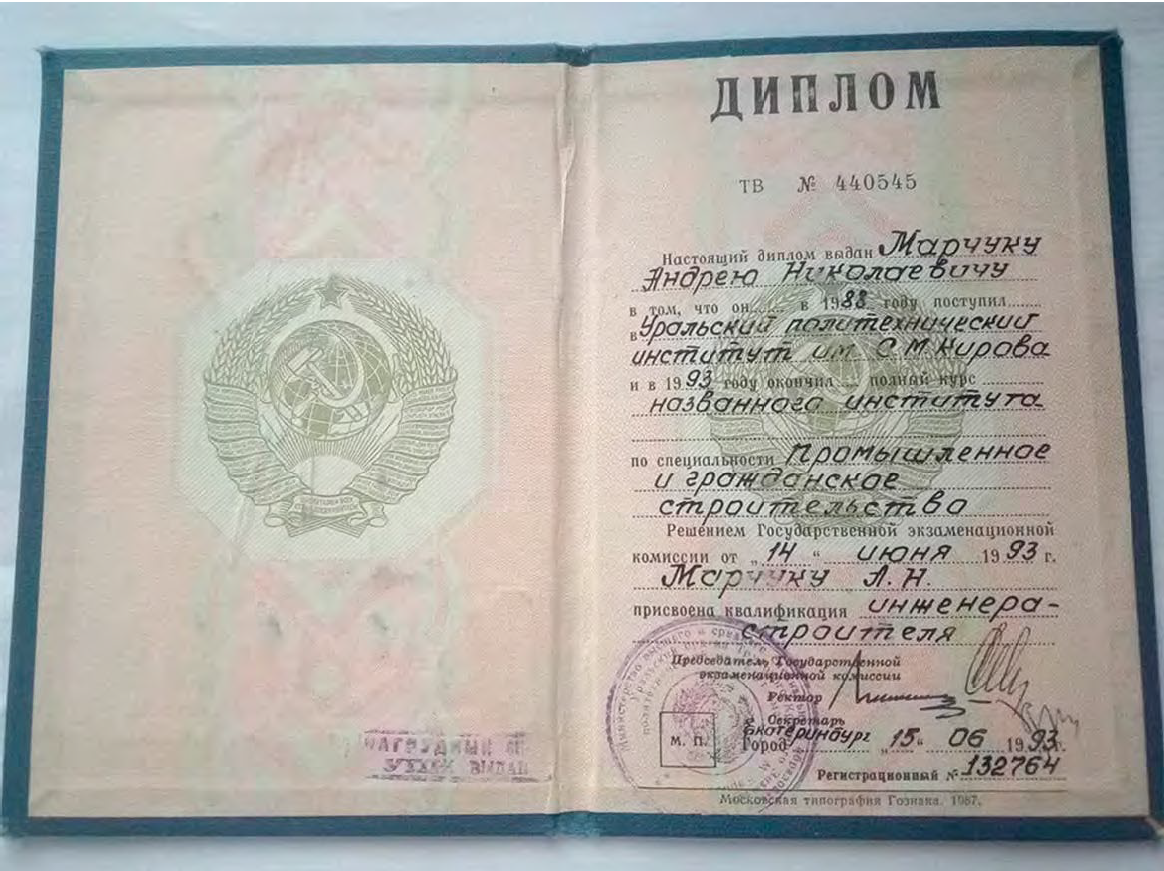 ДИПЛОМ
ТВ № 440545
Настоящий диплом выдан Марчуку
Андрею Николаевичу
в том, что он в 1988 году поступил
в Уральский политехнический
институт им. С.М.Кирова
и в 1993 году окончил полный курс
названного института
по специальности Промышленное
и гражданское
строительство
Решением Государственной экзаменационной
комиссии от „14“ июня 1993 г.
Марчуку А.Н.
присвоена квалификация инженера-
строителя
Председатель Государственной
экзаменационной комиссии
Ректор
Секретарь
М. П.
Город Екатеринбург „15“ 06 1993г.
Регистрационный № 132764
Московская типография Гознака. 1987.
НАГРУДНЫЙ
ВЫДАН